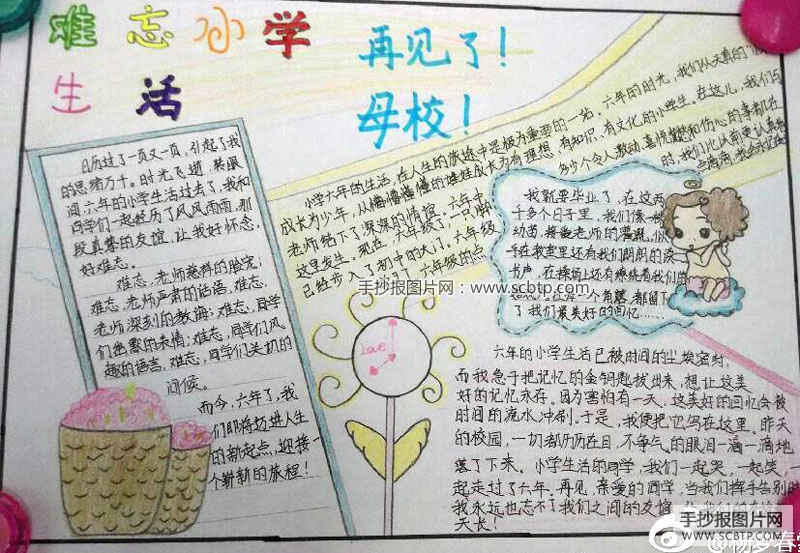 难忘小学
生活
再见了！
母校！
日历过了一页又一页，引起了我
的思绪万千。时光飞逝，转眼
间六年的小学生活过去了，我和
同学们一起经历了风风雨雨，那
段真挚的友谊，让我好怀念，
好难忘。
难忘，老师慈祥的脸宠；
难忘，老师严肃的话语；难忘，
老师深刻的教诲；难忘，同学
们幽默的表情；难忘，同学们风
趣的语言，难忘，同学们关机的
问候。
而今，六年了，我
们即将迈进人生
的新起点，迎接一
个崭新的旅程！
小学六年的生活，在人生的旅途中是极为重要的一站。六年的时光，我们从天真的
成长为少年，从懵懵懂懂的娃娃成长为有理想、有知识、有文化的小学生。在这儿，我们与
老师结下了深深的情谊。六年来，多少个令人激动、喜悦和伤心的事都在
这里发生。现在，六年级了，一只脚
已经步入了初中的大门，六年级
我就要毕业了，在这两
十多个日子里，我们像一棵
幼苗，接受老师的灌溉，似
乎在教室里还有我们朗朗的读
书声，在操场上还有缭绕着我们的
一个角落，都留下
了我们最美好的回忆……
手抄报图片网：www.scbtp.com
Love
六年的小学生活已被时间的尘埃密封，
而我急于把记忆的金钥匙拔出来，想让这美
好的记忆永在。因为害怕有一天，这美好的回忆会被
时间的流水冲刷。于是，我便把它写在这里。昨天
的校园，一切都历历在目，不争气的眼泪一滴一滴地
落了下来。小学生活的同学，我们一起哭，一起笑，一
起走过了六年。再见，亲爱的同学，当我们挥手告别时
我永远也忘不了我们之间的友谊
天长！
手抄报图片网
WWW.SCBTP.COM